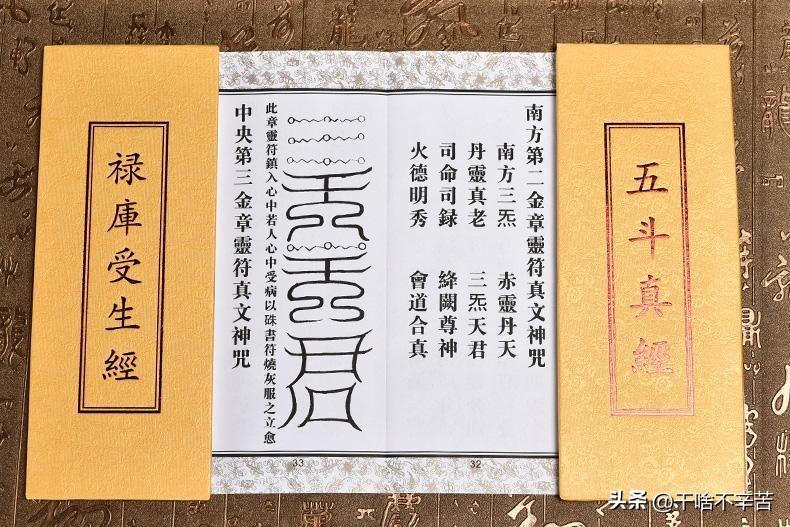 五斗真經
南方第二金章靈符真文神咒
南方三炁 赤靈丹天
丹靈真老 三炁天君
司命司録 絳闕尊神
火德明秀 會道合真
32
此章靈符鎮入心中若人心中受病以硃書符燒灰服之立愈
中央第三金章靈符真文神咒
33
禄庫受生經
头条 @干啥不辛苦